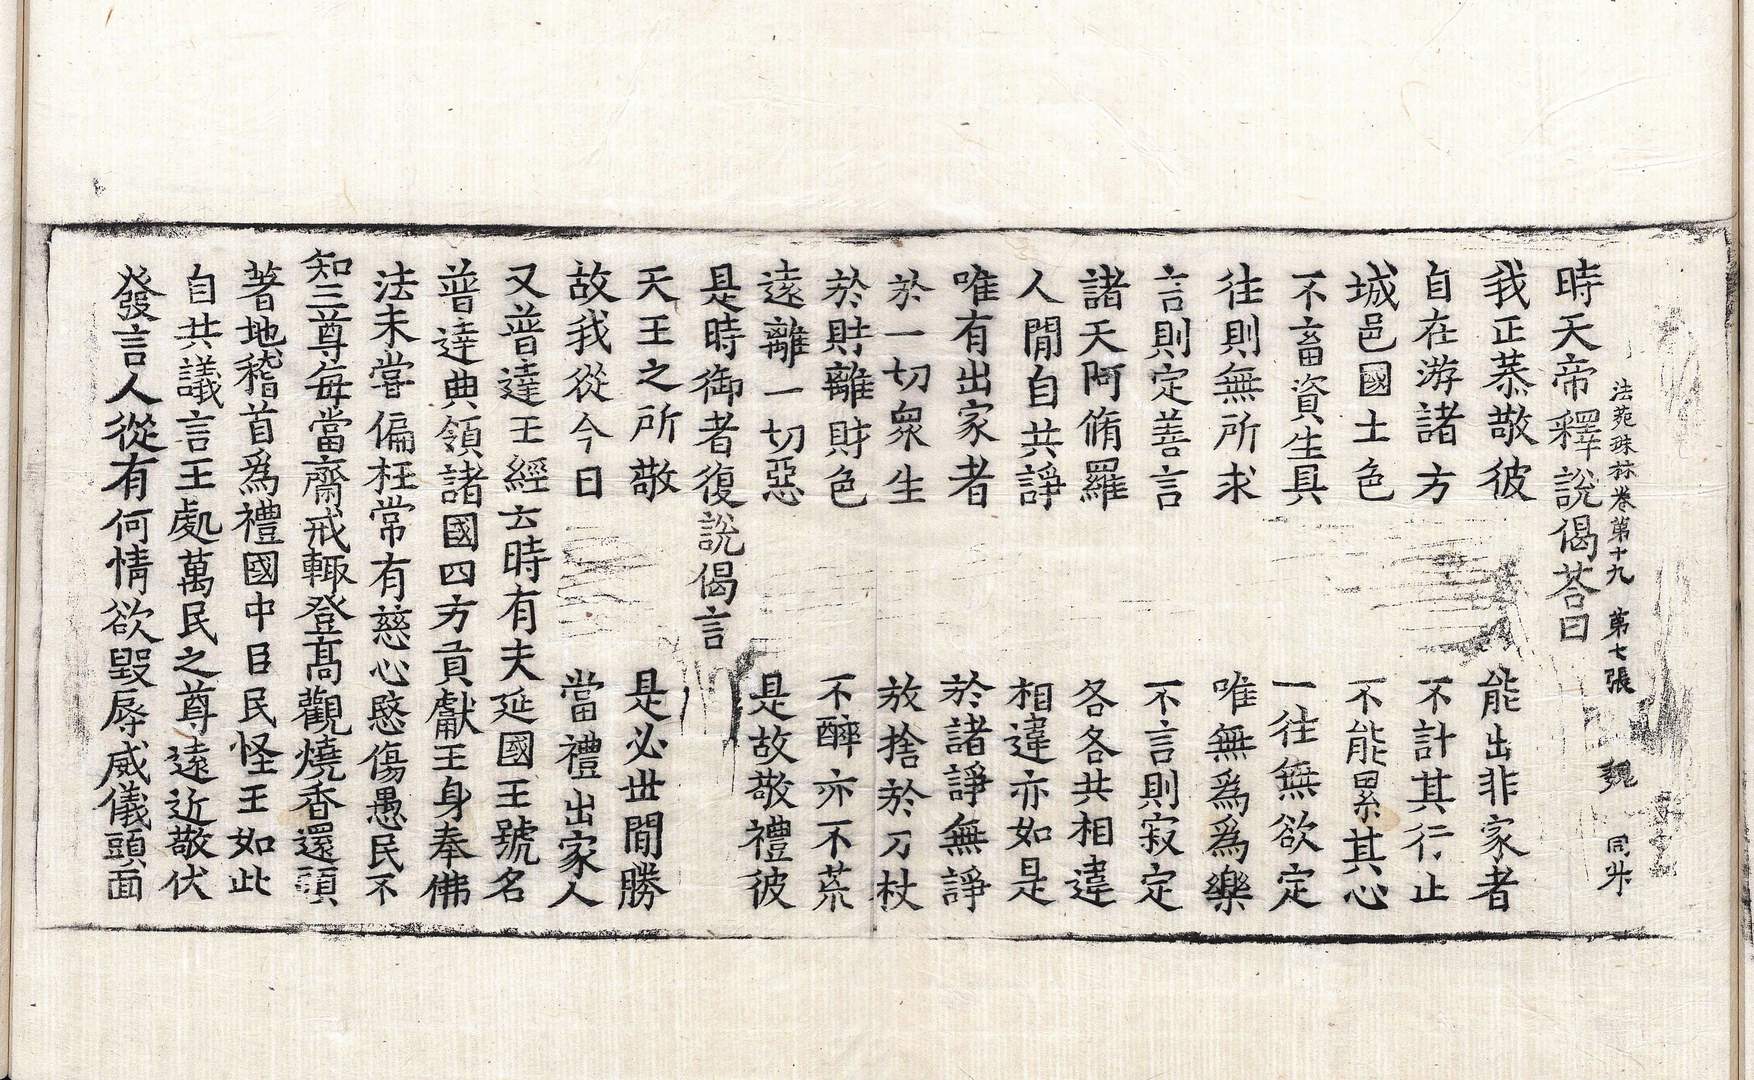 法苑珠林卷第十九 第七張 魏 同舛
時天帝釋說偈荅曰
我正恭敬彼 能出非家者
自在游諸方 不計其行止
城邑國土色 不能累其心
不畜資生具 一往無欲定
往則無所求 唯無爲爲樂
言則定善言 不言則寂定
諸天阿脩羅 各各共相違
人閒自共諍 相違亦如是
唯有出家者 於諸諍無諍
於一切衆生 放捨於刀杖
於財離財色 不醉亦不荒
遠離一切惡 是故敬禮彼
是時御者復說偈言
天王之所敬 是必世間勝
故我從今日 當禮出家人
又普達王經云時有夫延國王號名
普達典領諸國四方貢獻王身奉佛
法未嘗偏枉常有慈心愍傷愚民不
知三尊每當齋戒輙登高觀燒香還頭
著地稽首爲禮國中臣民怪王如此
自共議言王處萬民之尊遠近敬伏
發言人從有何情欲毀辱威儀頭面